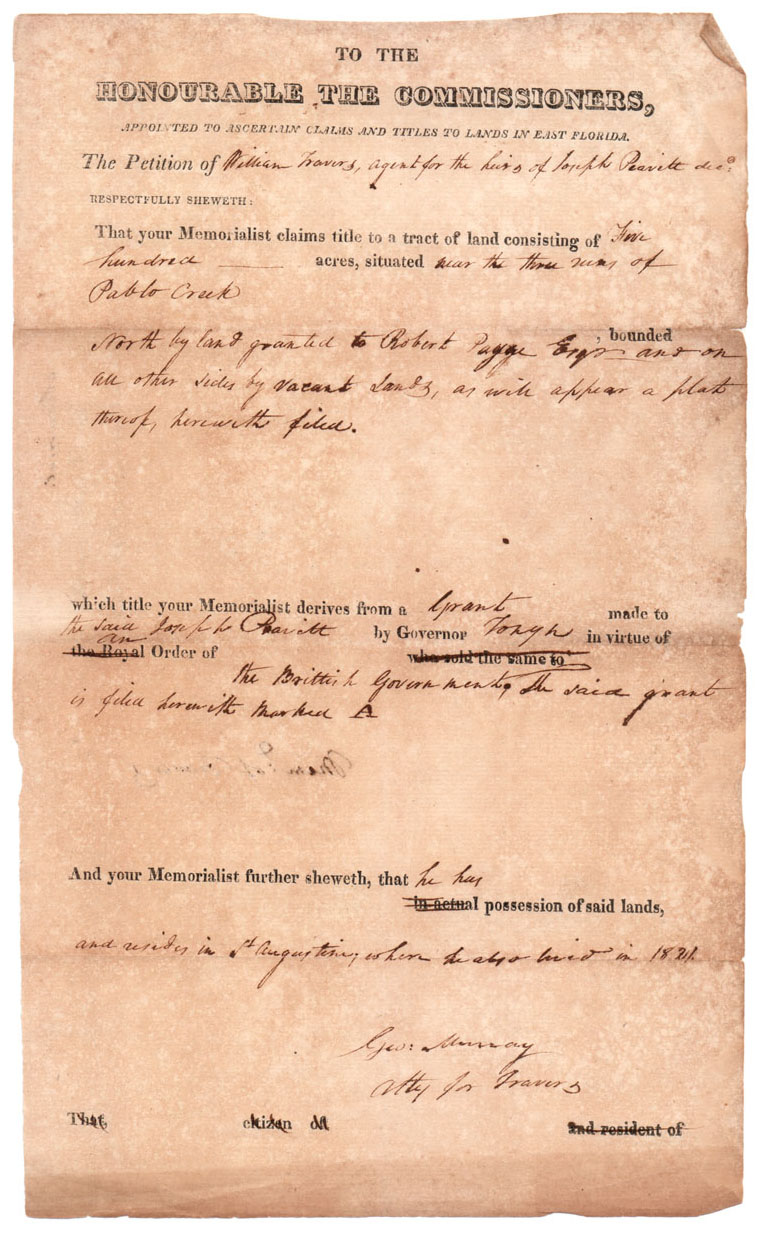 TO THE
HONOURABLE THE COMMISSIONERS,
APPOINTED TO ASCERTAIN CLAIMS AND TITLES TO LANDS IN EAST FLORIDA.
The Petition of William Travers, agent for the heirs of Joseph Peavitt decd.
RESPECTFULLY SHEWETH:
That your Memorialist claims title to a tract of land consisting of Five
hundred acres, situated near the three runs of
Pablo Creek
, bounded
North by land granted to Robert Payne Esqr and on
all other sides by vacant Lands, as will appear a plat
thereof, herewith filed.
which title your Memorialist derives from a Grant made to
the said Joseph Peavitt by Governor Tonyn in virtue of
an
the Royal Order of who sold the same to
the Brittish Government, the said grant
is filed herewith marked A
And your Memorialist further sheweth, that he has
in actual possession of said lands,
and resides in St Augustine, where he also lived in 1821.
Geo: Murray
Atty for Travers
That, citizen of and resident of